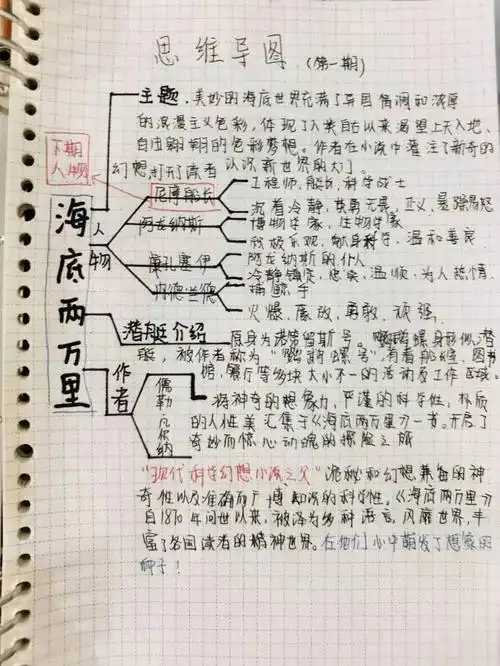 思维导图(第一期)
主题.美妙的海底世界充满了异国情调和浓厚
的浪漫主义色彩,体现了人类自古以来渴望上天入地、
自由翱翔的色彩梦想。作者在小说中灌注了新奇的
幻想,打开了读者认识新世界的大门。
下期
人物
海底两万里
人物
尼摩船长
工程师,船长,科学战士
沉着冷静,英勇无畏、正义、暴躁易怒
阿龙纳斯
博物学家,生物学家
积极乐观、献身科学、温和善良
康孔塞伊
阿龙纳斯的仆人
冷静镇定,忠实,温顺,为人热情.
内德兰德
捕鲸手
火爆,豪放,勇敢,顽强.
潜艇介绍
原身为诺第留斯号。鹦鹉螺身形似潜
艇,被作者称为"鹦鹉螺号",有着船长室,图书
馆,餐厅等多块大小不一的活动及工作区域。
作者
儒勒凡尔纳
将神奇的想象力,严谨的科学性,朴质
的人性美汇集于《海底两万里》一书。开启了
奇妙而惊心动魄的探险之旅
"现代科学幻想小说之父"
神秘和幻想兼备的神
奇性以及准确而广博知识的科学性。《海底两万里》
自1870年问世以来,被译为多种语言,风靡世界,丰
富了各国读者的精神世界。在他们心中萌发了想象的
种子!